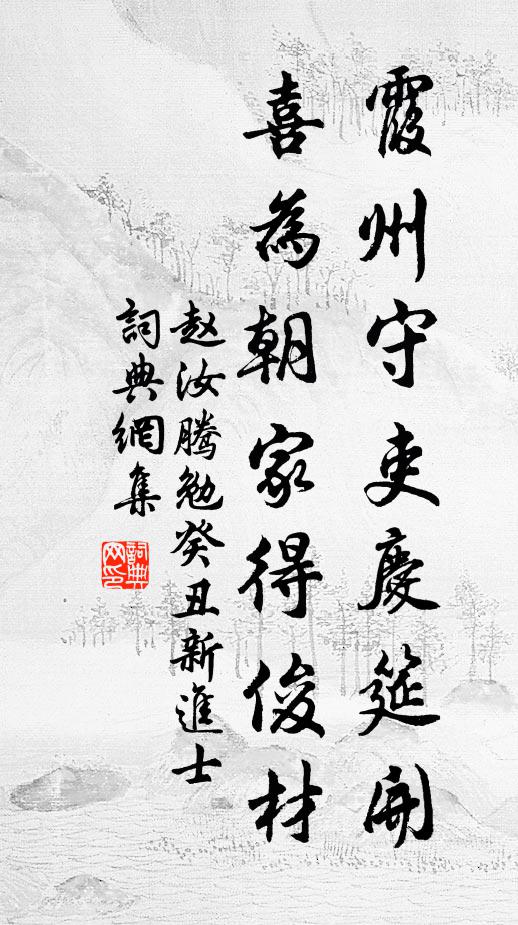 霞州守吏慶筵開
喜為朝家得俊材
赵汝騰勉癸丑新進士
詞典網集
詞典
网印